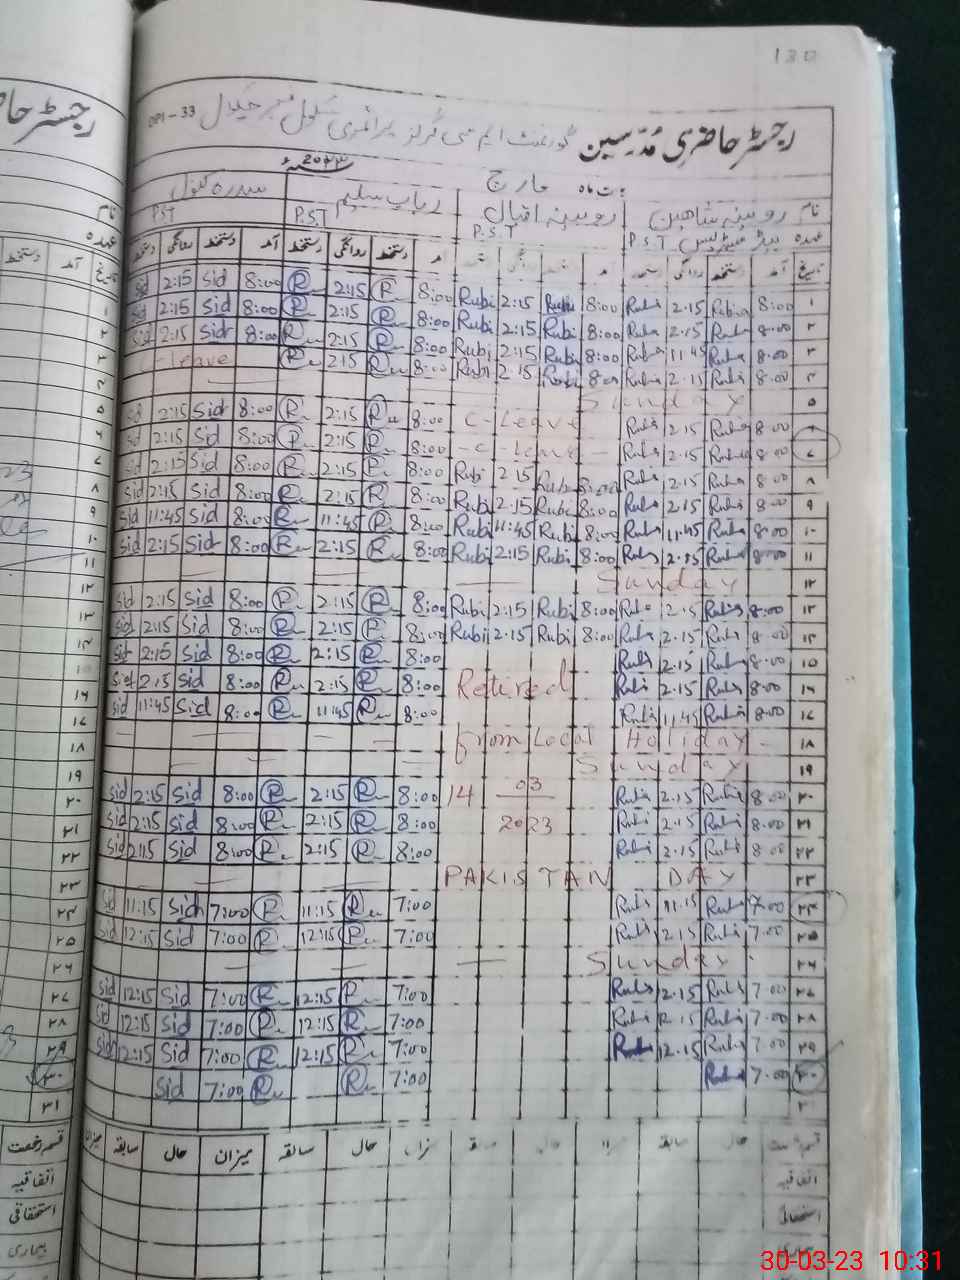 130
DPI - 33
رجسٹر حاضری مدرسین گورنمنٹ ایم سی گرلز پرائمری سکول
بابت ماہ مارچ ۲۰۲۳ء
نام روبینہ شاہین روبینہ اقبال رباب سلیم سدرہ کنول
عہدہ ہیڈ مسٹریس P.S.T P.S.T P.S.T PST
تاریخ آمد دستخط روانگی دستخط دستخط روانگی دستخط آمد دستخط روانگی دستخط
۱ 8:00 Rubi 2:15 Rubi 8:00 Rubi 2:15 Rubi 8:00 R 2:15 R 8:00 Sid 2:15 Sid
۲ 8:00 Rubi 2:15 Rubi 8:00 Rubi 2:15 Rubi 8:00 R 2:15 R 8:00 Sid 2:15 Sid
۳ 8:00 Rubi 11:45 Rubi 8:00 Rubi 2:15 Rubi 8:00 R 2:15 R 8:00 Sid 2:15 Sid
۴ 8:00 Rubi 2:15 Rubi 8:00 Rubi 2:15 Rubi 8:00 R 2:15 R Leave
۵ Sunday
۶ 8:00 Rubi 2:15 Rubi C-Leave 8:00 R 2:15 R 8:00 Sid 2:15 Sid
۷ 8:00 Rubi 2:15 Rubi - C - Leave - 8:00 R 2:15 R 8:00 Sid 2:15 Sid
۸ 8:00 Rubi 2:15 Rubi 8:00 Rubi 2:15 Rubi 8:00 R 2:15 R 8:00 Sid 2:15 Sid
۹ 8:00 Rubi 2:15 Rubi 8:00 Rubi 2:15 Rubi 8:00 R 2:15 R 8:00 Sid 2:15 Sid
۱۰ 8:00 Rubi 11:45 Rubi 8:00 Rubi 11:45 Rubi 8:00 R 11:45 R 8:00 Sid 11:45 Sid
۱۱ 8:00 Rubi 2:15 Rubi 8:00 Rubi 2:15 Rubi 8:00 R 2:15 R 8:00 Sid 2:15 Sid
۱۲ Sunday
۱۳ 8:00 Rubi 2:15 Rubi 8:00 Rubi 2:15 Rubi 8:00 R 2:15 R 8:00 Sid 2:15 Sid
۱۴ 8:00 Rubi 2:15 Rubi 8:00 Rubi 2:15 Rubi 8:00 R 2:15 R 8:00 Sid 2:15 Sid
۱۵ 8:00 Rubi 2:15 Rubi 8:00 R 2:15 R 8:00 Sid 2:15 Sid
۱۶ 8:00 Rubi 2:15 Rubi Retired 8:00 R 2:15 R 8:00 Sid 2:15 Sid
۱۷ 8:00 Rubi 11:45 Rubi 8:00 R 11:45 R 8:00 Sid 11:45 Sid
۱۸ from Local Holiday
۱۹ Sunday
۲۰ 8:00 Rubi 2:15 Rubi 14 03 8:00 R 2:15 R 8:00 Sid 2:15 Sid
۲۱ 8:00 Rubi 2:15 Rubi 2023 8:00 R 2:15 R 8:00 Sid 2:15 Sid
۲۲ 8:00 Rubi 2:15 Rubi 8:00 R 2:15 R 8:00 Sid 2:15 Sid
۲۳ PAKISTAN DAY
۲۴ 7:00 Rubi 11:15 Rubi 7:00 R 11:15 R 7:00 Sid 11:15 Sid
۲۵ 7:00 Rubi 12:15 Rubi 7:00 R 12:15 R 7:00 Sid 12:15 Sid
۲۶ Sunday
۲۷ 7:00 Rubi 12:15 Rubi 7:00 R 12:15 R 7:00 Sid 12:15 Sid
۲۸ 7:00 Rubi 12:15 Rubi 7:00 R 12:15 R 7:00 Sid 12:15 Sid
۲۹ 7:00 Rubi 12:15 Rubi 7:00 R 12:15 R 7:00 Sid 12:15 Sid
۳۰ 7:00 Rubi 7:00 R R 7:00 Sid
حال سابقہ حال سابقہ میزان حال سابقہ میزان
اتفاقیہ
استحقاقی
بیماری
30-03-23 10:31